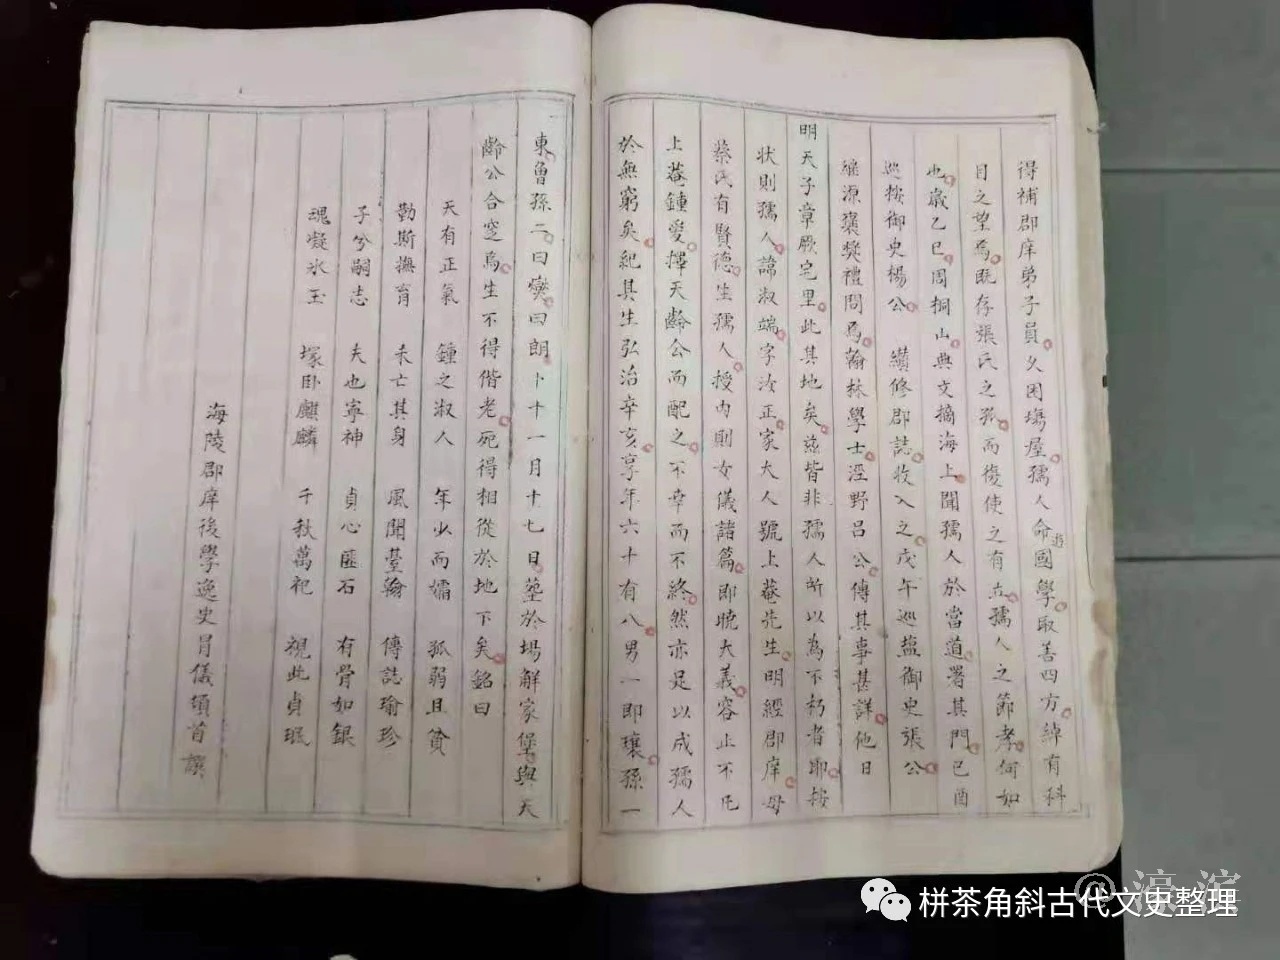 得補郡庠弟子員久困場屋孺人命遊國學取善四方綽有科
目之望焉既存張氏之孤而復使之有立孺人之節孝何如
也歲乙巳周桐山典文摘海上聞孺人於當道署其門已酉
巡按御史楊公 纘修郡誌收入之戊午巡鹽御史張公
繼源褒獎禮問焉翰林學士涇野呂公傳其事甚詳他日
明天子章厥宅里此其地矣茲皆非孺人所以為不朽者耶按
狀則孺人諱淑端字汝正家大人號上菴先生明經郡庠母
蔡氏有賢德生孺人授內則女儀諸篇即曉大義容止不凡
上菴鍾愛擇天齡公而配之不幸而不終然亦足以成孺人
於無窮矣紀其生弘治辛亥享年六十有八男一即瓖孫一
東魯孫二曰爕曰朗卜十一月十七日塟於場解家堡與天
齡公合窆焉生不得偕老死得相從於地下矣銘曰
天有正氣 鍾之淑人 年少而孀 孤弱且貧
勤斯撫育 未亡其身 風聞臺翰 傳誌瑜珍
子兮嗣志 夫也寧神 貞心匪石 有骨如銀
魂凝氷玉 塚卧麒麟 千秋萬祀 視此貞珉
海陵郡庠後學逸史冒儀頓首譔
栟茶角斜古代文史整理
@濠滨